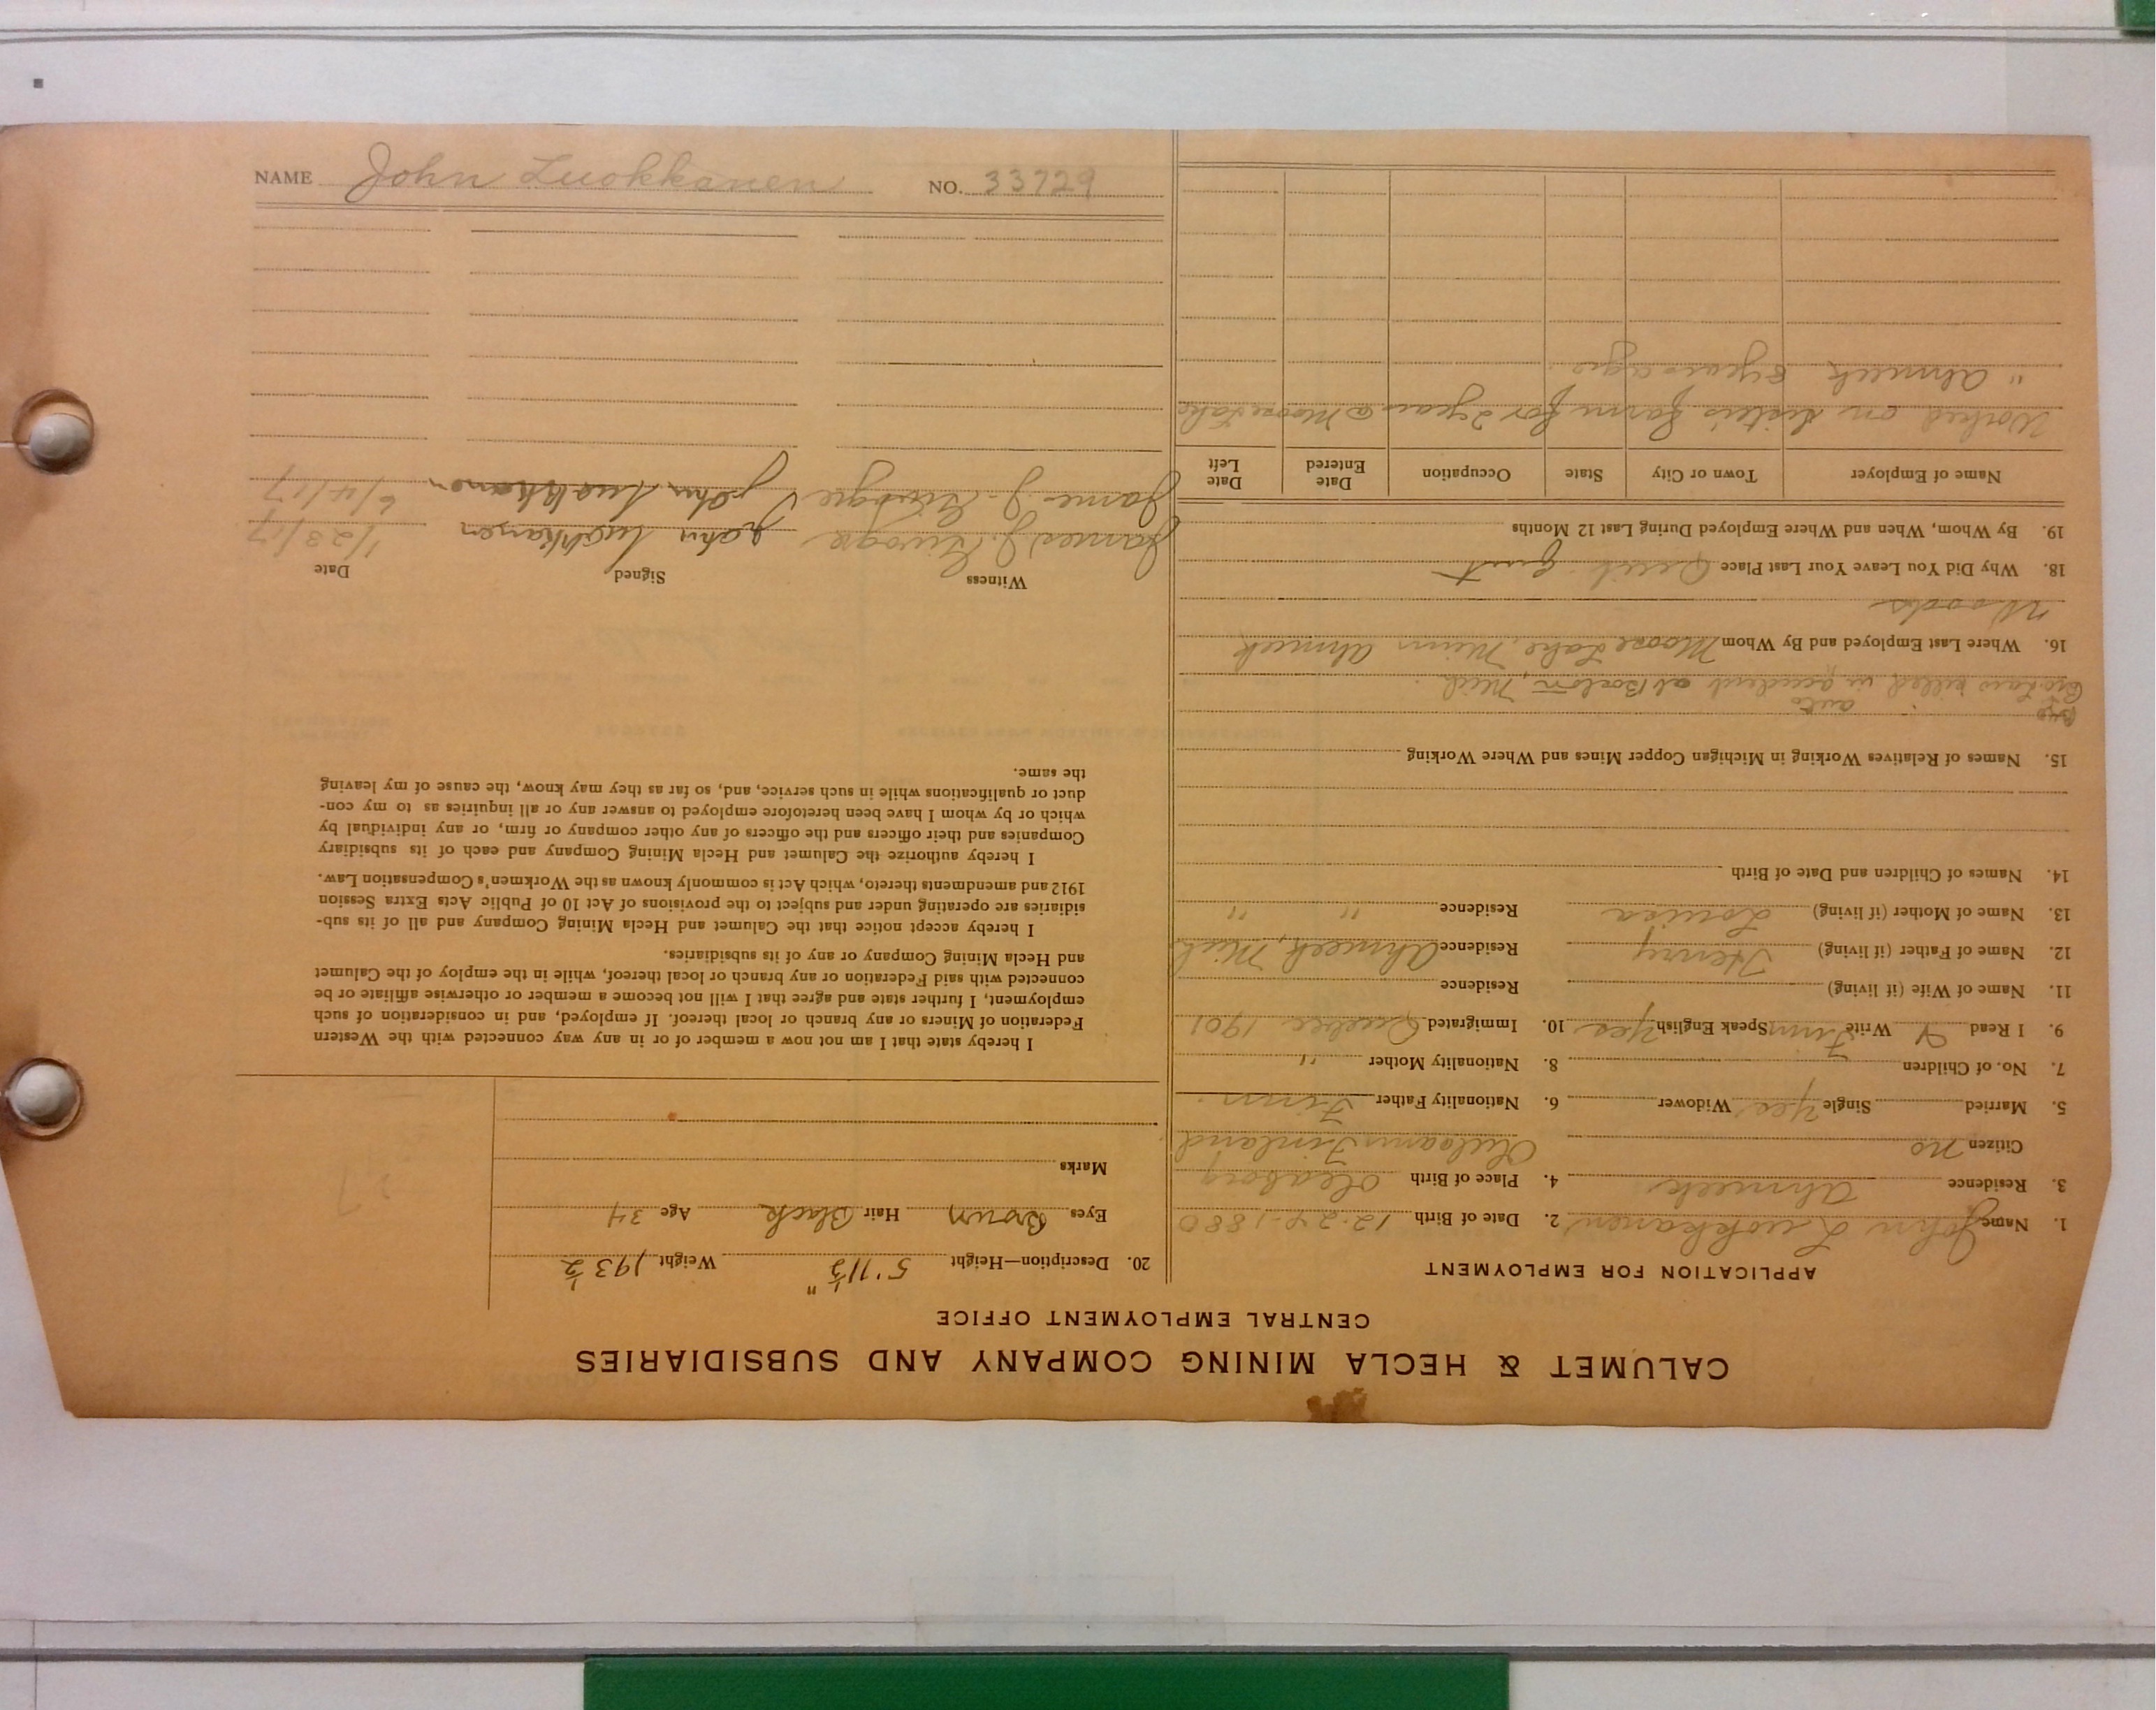 CALUMET & HECLA MINING COMPANY AND SUBSIDIARIES
CENTRAL EMPLOYMENT OFFICE
APPLICATION FOR EMPLOYMENT
1. Name John Luokkanen 2. Date of Birth 12-24-1880
3. Residence Ahmeek 4. Place of Birth Oleaborg
Citizen no Finland
5. Married Single Yes Widower 6. Nationality Father Finn
7. No. of Children 8. Nationality Mother "
9. I Read & Write Finn Speak English Yes 10. Immigrated Quebec 1901
11. Name of Wife (if living) Residence
12. Name of Father (if living) Henry Residence Ahmeek, Mich
13. Name of Mother (if living) Louisa Residence " "
14. Names of Children and Date of Birth
15. Names of Relatives Working in Michigan Copper Mines and Where Working
auto
Bro-Law killed in accident at Boston, Mich.
16. Where Last Employed and By Whom Moose Lake, Minn Ahmeek
Woods
18. Why Did You Leave Your Last Place Quit
19. By Whom, When and Where Employed During Last 12 Months
Name of Employer Town or City State Occupation Date Entered Date Left
Worked on sister's farm for 2 years @ Moose Lake
" Ahmeek 8 years ago.
20. Description—Height 5' 11 1/2" Weight 193 1/2
Eyes Brown Hair Black Age 34
Marks
I hereby state that I am not now a member of or in any way connected with the Western
Federation of Miners or any branch or local thereof. If employed, and in consideration of such
employment, I further state and agree that I will not become a member or otherwise affiliate or be
connected with said Federation or any branch or local thereof, while in the employ of the Calumet
and Hecla Mining Company or any of its subsidiaries.
I hereby accept notice that the Calumet and Hecla Mining Company and all of its sub-
sidiaries are operating under and subject to the provisions of Act 10 of Public Acts Extra Session
1912 and amendments thereto, which Act is commonly known as the Workmen's Compensation Law.
I hereby authorize the Calumet and Hecla Mining Company and each of its subsidiary
Companies and their officers and the officers of any other company or firm, or any individual by
which or by whom I have been heretofore employed to answer any or all inquiries as to my con-
duct or qualifications while in such service, and, so far as they may know, the cause of my leaving
the same.
Witness Signed Date
James J. John Luokkanen 1/23/17
James J. John Luokkanen 6/4/17
NAME John Luokkanen NO. 33729